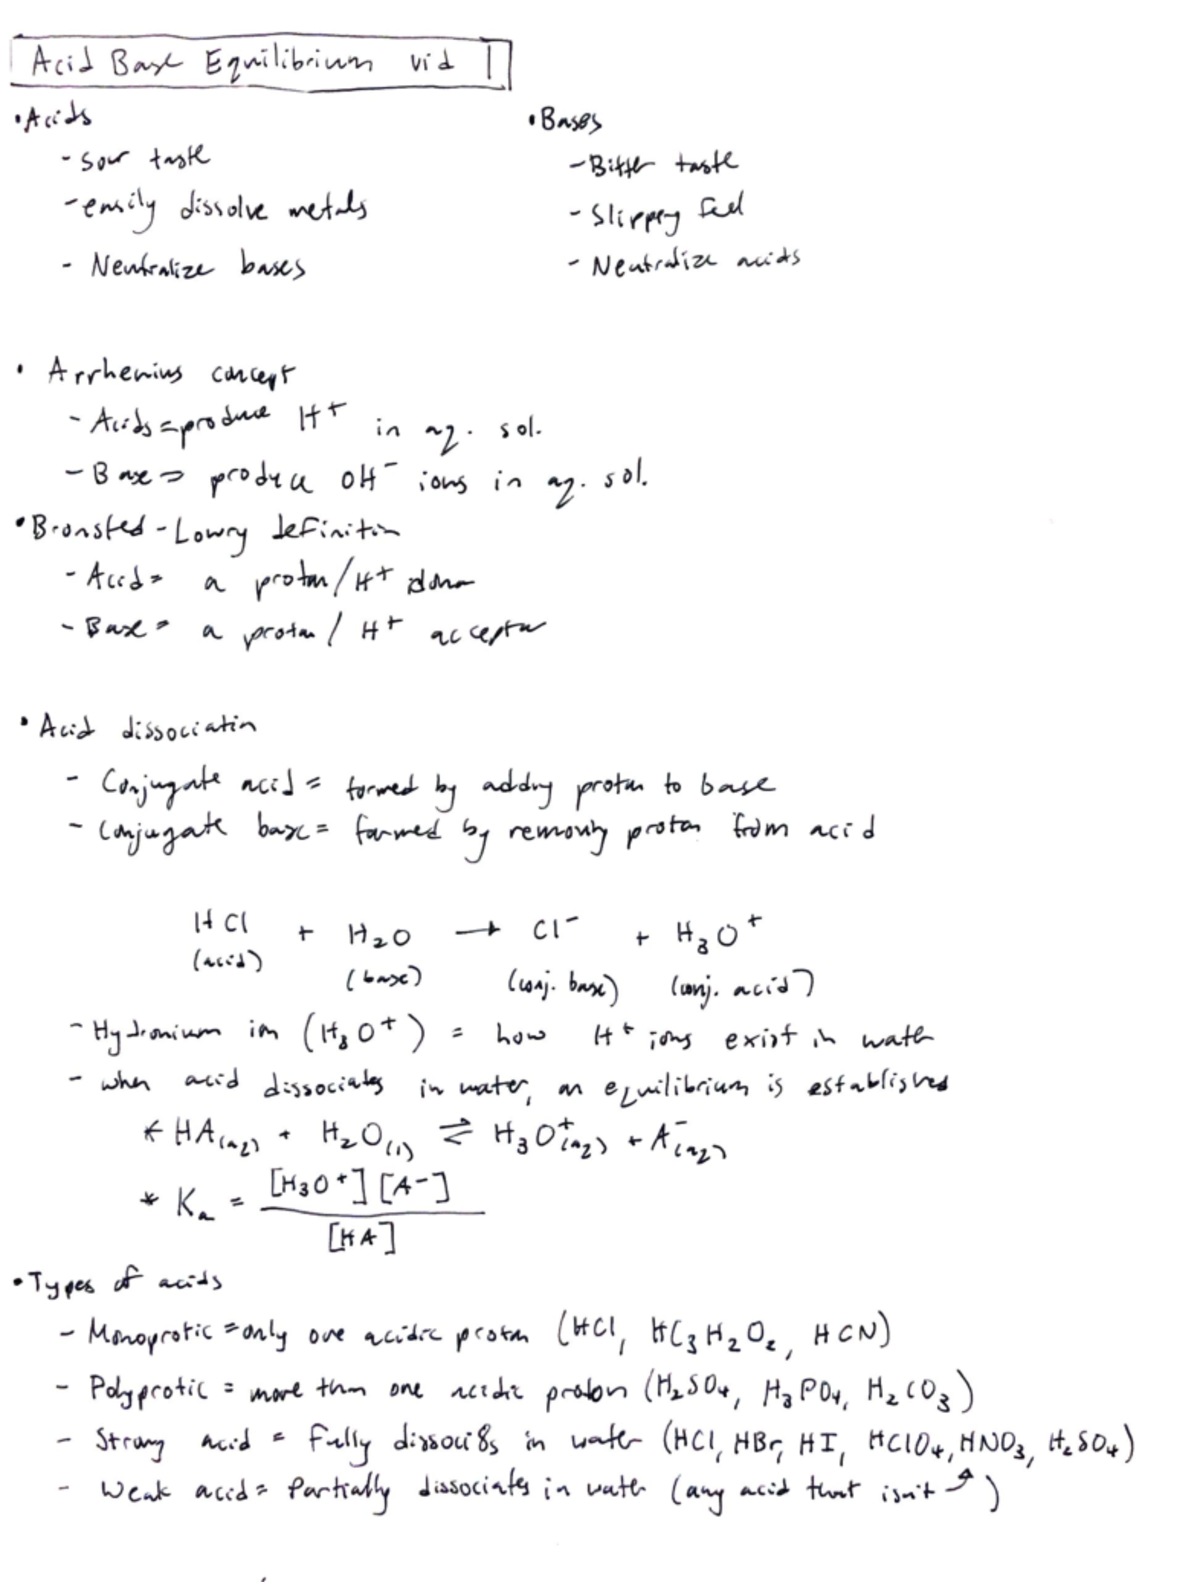 Acid Base Equilibrium vid 1
• Acids
- Sour taste
- easily dissolve metals
- Neutralize bases
• Bases
- Bitter taste
- Slippery feel
- Neutralize acids
• Arrhenius concept
- Acids = produce H⁺ in aq. sol.
- Base => produce OH⁻ ions in aq. sol.
• Bronsted-Lowry definition
- Acid = a proton/H⁺ donor
- Base = a proton/H⁺ acceptor
• Acid dissociation
- Conjugate acid = formed by adding proton to base
- Conjugate base = formed by removing proton from acid
HCl + H₂O → Cl⁻ + H₃O⁺
(acid) (base) (conj. base) (conj. acid)
- Hydronium ion (H₃O⁺) = how H⁺ ions exist in water
- when acid dissociates in water, an equilibrium is established
* HA(aq) + H₂O(l) ⇌ H₃O⁺(aq) + A⁻(aq)
* Kₐ = [H₃O⁺][A⁻]
[HA]
• Types of acids
- Monoprotic = only one acidic proton (HCl, HC₃H₂O₂, HCN)
- Polyprotic = more than one acidic proton (H₂SO₄, H₃PO₄, H₂CO₃)
- Strong acid = Fully dissoci8s in water (HCl, HBr, HI, HClO₄, HNO₃, H₂SO₄)
- Weak acid = Partially dissociates in water (any acid that isn't ↗)